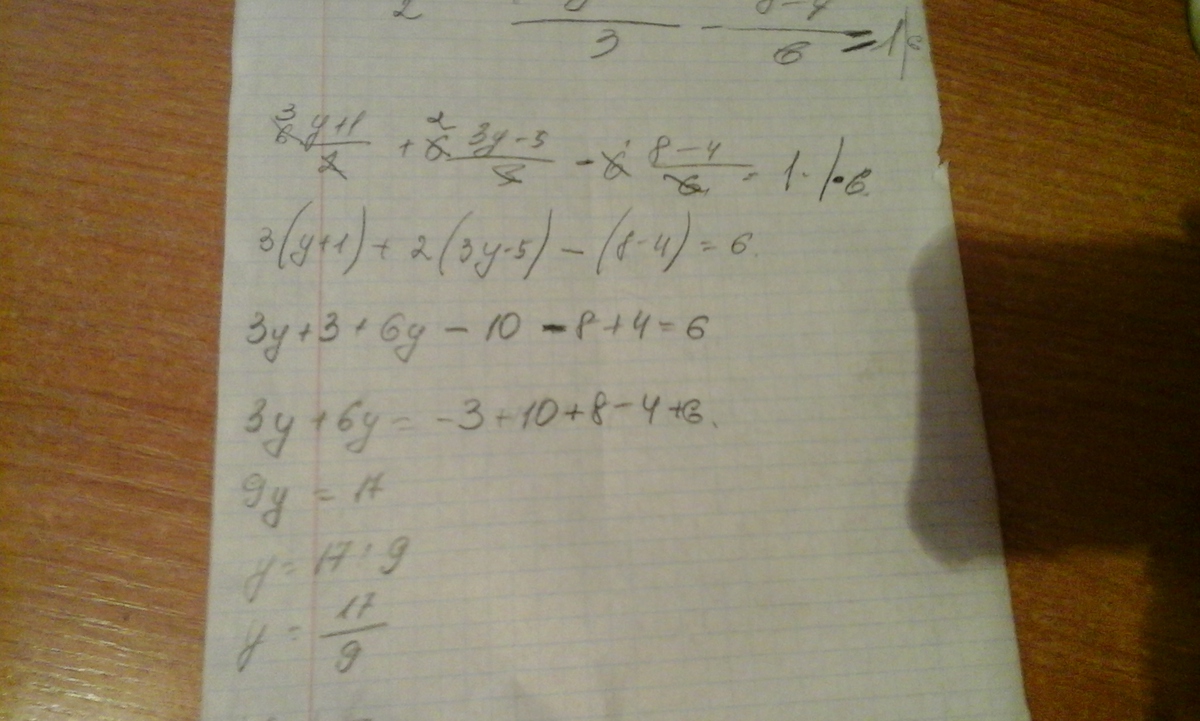 2 3 - 8-4/6 = 1 |6
3 6 y+1/2 + 2 6 3y-5/3 - 6 1 8-4/6 = 1. |·6.
3(y+1) + 2(3y-5) - (8-4) = 6.
3y+3+6y-10-8+4=6
3y+6y=-3+10+8-4+6.
9y=17
y=17:9
y=17/9